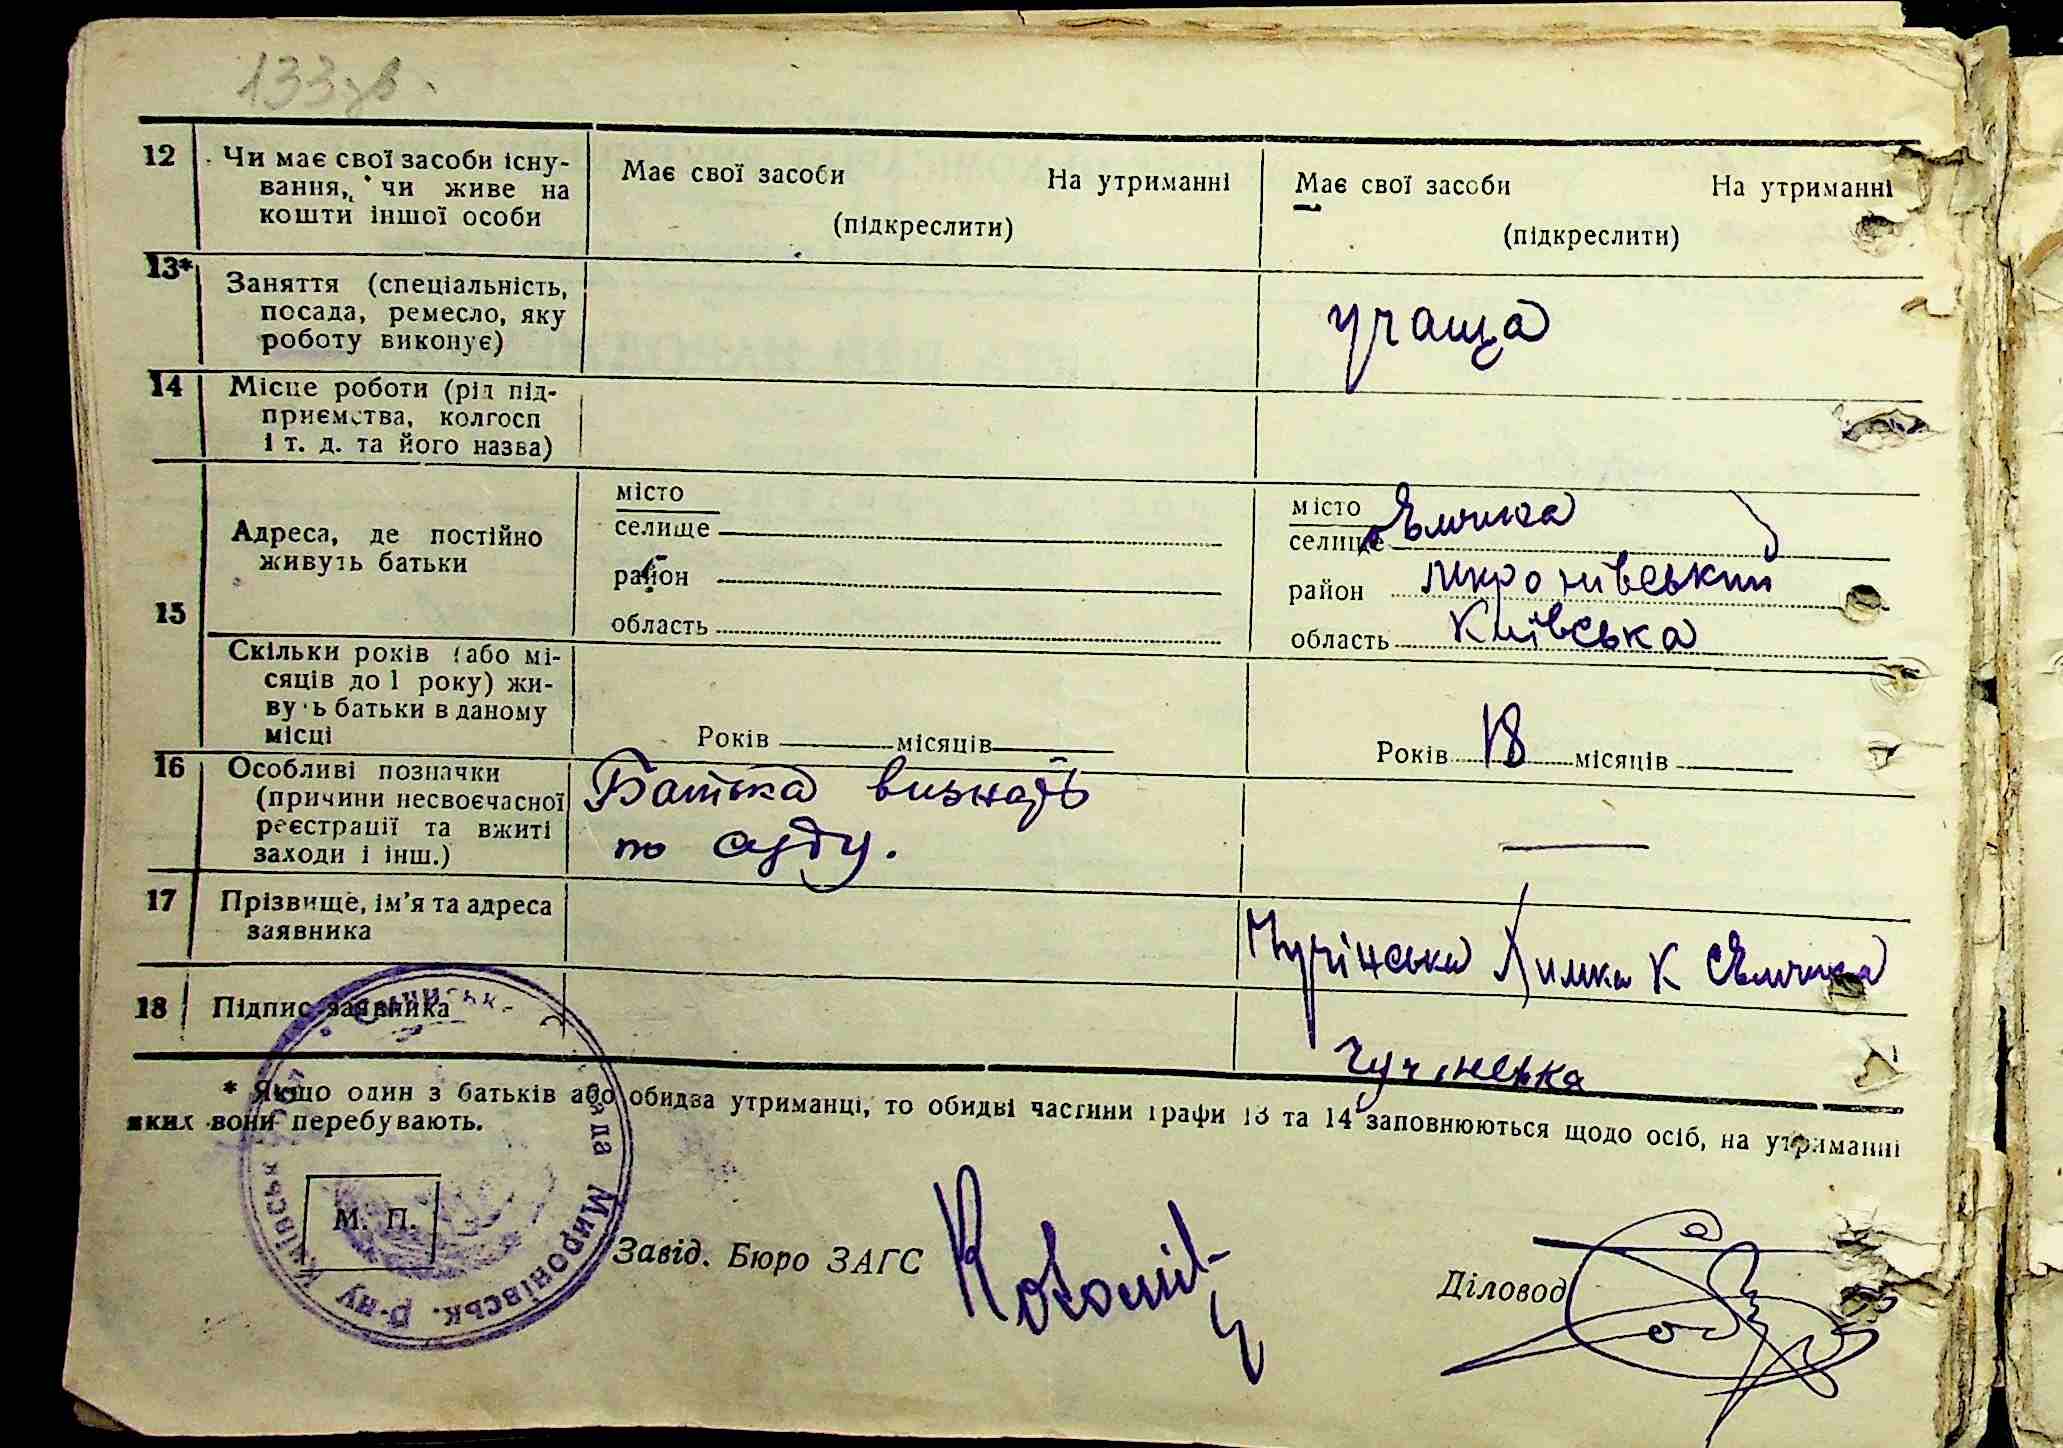 133зв.
12 Чи має свої засоби існу-
вання, чи живе на
кошти іншої особи
Має свої засоби На утриманні
(підкреслити)
Має свої засоби На утриманні
(підкреслити)
13* Заняття (спеціальність,
посада, ремесло, яку
роботу виконує)
учаща
14 Місце роботи (рід під-
приємства, колгосп
і т. д. та його назва)
15 Адреса, де постійно
живуть батьки
місто
селище
район
область
місто
селище с Ємчиха
район Миронівський
область Київська
Скільки років (або мі-
сяців до 1 року) жи-
вуть батьки в даному
місці
Років місяців
Років 18 місяців
16 Особливі позначки
(причини несвоєчасної
реєстрації та вжиті
заходи і інш.)
Батька визнать
по суду.
17 Прізвище, ім’я та адреса
заявника
Химка К с Ємчиха
18 Підпис заявника
* Якщо один з батьків або обидва утриманці, то обидві частини графи 13 та 14 заповнюються щодо осіб, на утриманні
яких вони перебувають.
М. П.
Миронівськ. р-ну Київськ
Завід. Бюро ЗАГС
Діловод